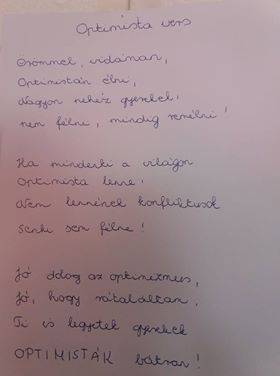 Optimista vers
Örömmel, vidáman,
Optimistán élni,
Nagyon nehéz gyerekek,
nem félni, mindig remélni!
Ha mindenki a világon
Optimista lenne!
Nem lennének konfliktusok
Senki sem félne!
Jó dolog az optimizmus,
Jó, hogy rátaláltam,
Ti is legyetek gyerekek
OPTIMISTÁK bátran!